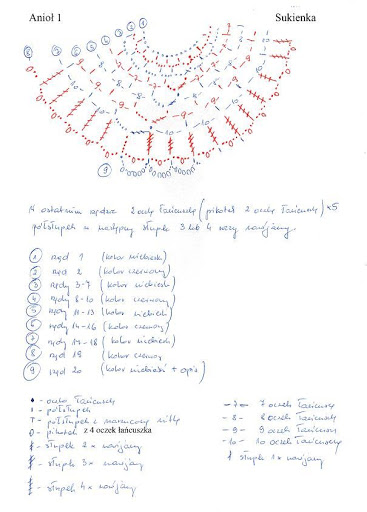 Anioł 1
Sukienka
W ostatnim rzędzie 2 oczka łańcuszka (pikotek 2 oczka łańcuszka) x5
półsłupek w następny słupek 3 lub 4 razy nawijany.
1 rząd 1 (kolor niebieski)
2 rząd 2 (kolor czerwony)
3 rzędy 3-7 (kolor niebieski)
4 rzędy 8-10 (kolor czerwony)
5 rzędy 11-13 (kolor niebieski)
6 rzędy 14-16 (kolor czerwony)
7 rzędy 17-18 (kolor niebieski)
8 rząd 19 (kolor czerwony)
9 rząd 20 (kolor niebieski + opis)
- oczko łańcuszka
- półsłupek
- półsłupek z nitką
- pikotek z 4 oczek łańcuszka
- słupek 2x nawijany
- słupek 3x nawijany
- słupek 4x nawijany
-7- 7 oczek łańcuszka
-8- 8 oczek łańcuszka
-9- 9 oczek łańcuszka
-10- 10 oczek łańcuszka
słupek 1x nawijany